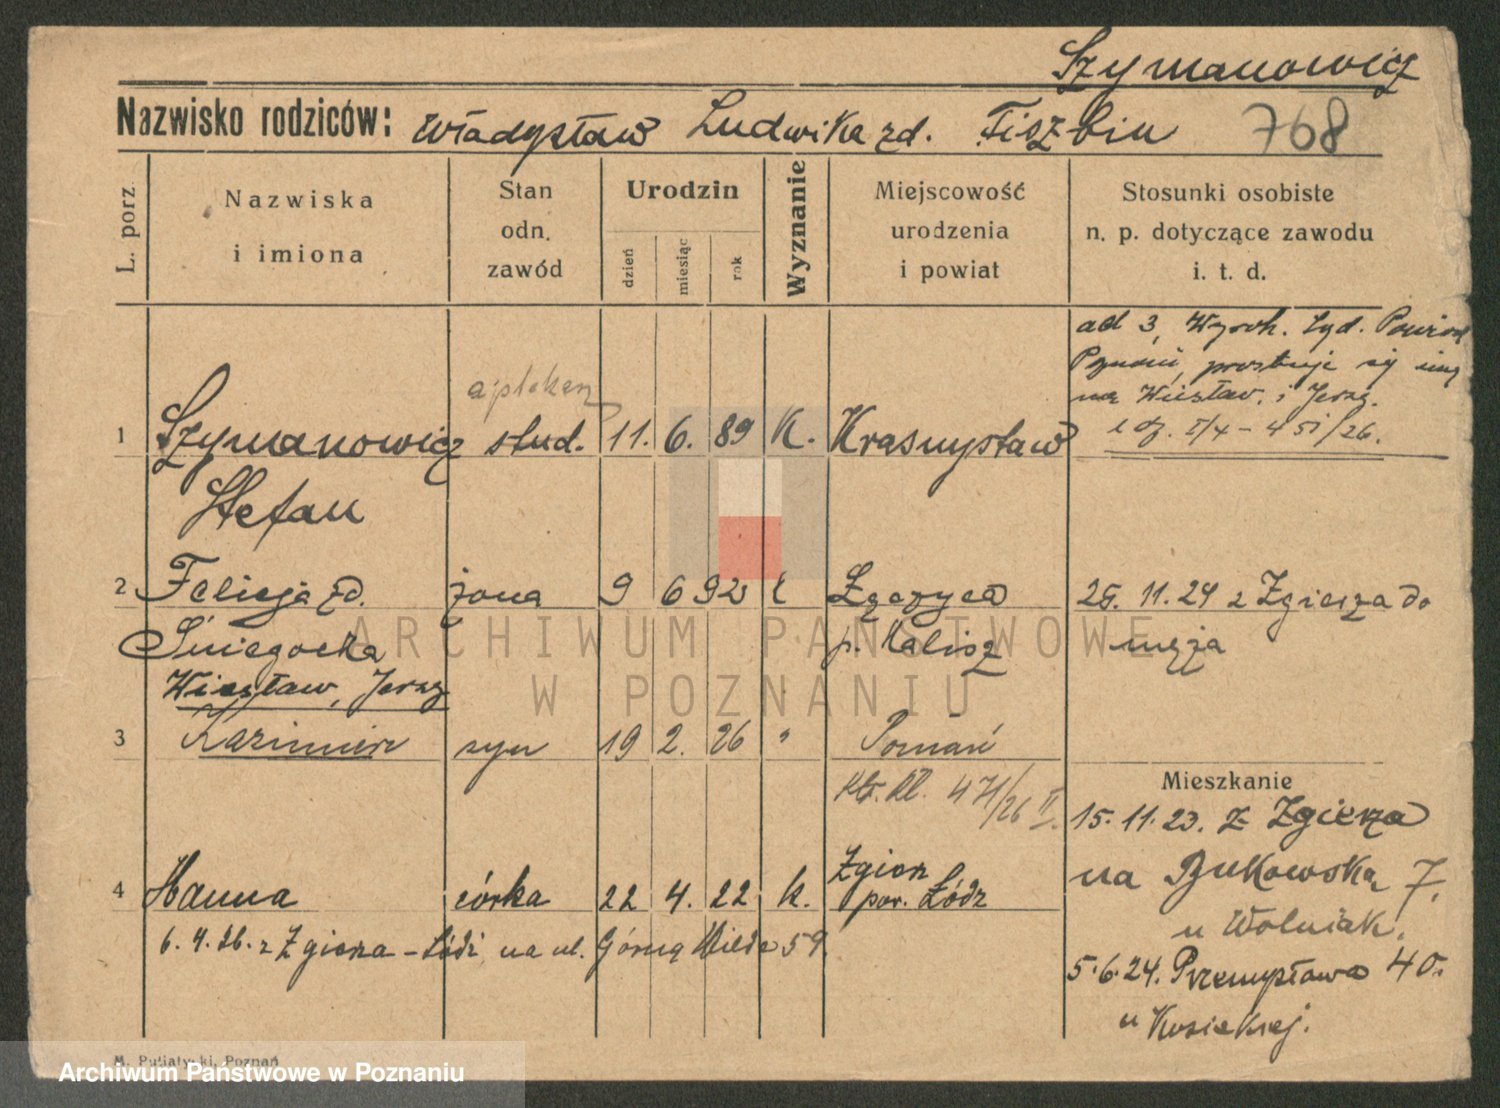 Szymanowicz
Nazwisko rodziców: Władysław Ludwika zd. Fiszbin 768
L. porz
Nazwiska i imiona
Stan odn. zawód
Urodzin
dzień miesiąc rok
Wyznanie
Miejscowość urodzenia i powiat
Stosunki osobiste n. p. dotyczące zawodu i. t. d.
ad 3, Wyrok. Syd. Powiat
Poznań, prostuje się imę
na Wiesław, i Jerzy.
aptekarz
1 Szymanowicz stud. 11. 6. 89 K. Krasnystaw
Stefan
2 Felicja zd. żona 9 6 92 k Łęczyca 25. 11. 24 z Zgierza do
Śniegocka p. Kalisz męża
Wiesław, Jerzy
3 Kazimierz syn 19 2. 26 " Poznań
Mieszkanie
Kb. Kl. 471/26 II.
15. 11. 23. z Zgierza
na Bukowską 7.
Zgierz
4 Hanna córka 22 4. 22 k. pow. Łódz
u Wolniak.
6. 4. 26. z Zgierza - Łódź, na ul. Górną Wildę 59
5. 6. 24. Przemysłowa 40.
u Kosickiej.
M. Putiatycki, Poznań
ARCHIWUM PAŃSTWOWE
W POZNANIU
Archiwum Państwowe w Poznaniu